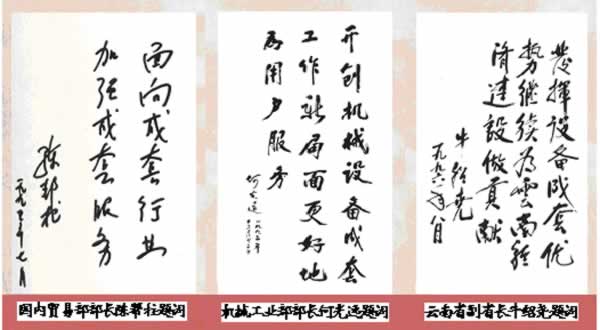 面向成套行业
加强成套服务
陈邦柱
一九九五年七月
国内贸易部部长陈帮柱题词
开创机械设备成套
工作新局面更好地
为用户服务
何光远
一九九五年
机械工业部部长何光远题词
發揮设备成套优
势継续為雲南经
济建設做貢献
牛绍尧
一九九六年八月
云南省副省长牛绍尧题词